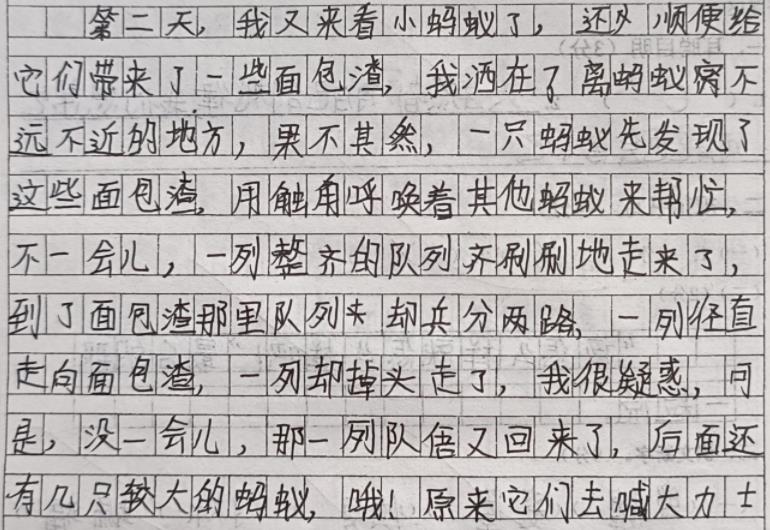 第二天，我又来看小蚂蚁了，还顺便给
它们带来了一些面包渣，我洒在了离蚂蚁窝不
远不近的地方，果不其然，一只蚂蚁先发现了
这些面包渣，用触角呼唤着其他蚂蚁来帮忙，
不一会儿，一列整齐的队列齐刷刷地走来了，
到了面包渣那里队列却兵分两路，一列径直
走向面包渣，一列却掉头走了，我很疑惑，可
是，没一会儿，那一列队伍又回来了，后面还
有几只较大的蚂蚁，哦！原来它们去喊大力士